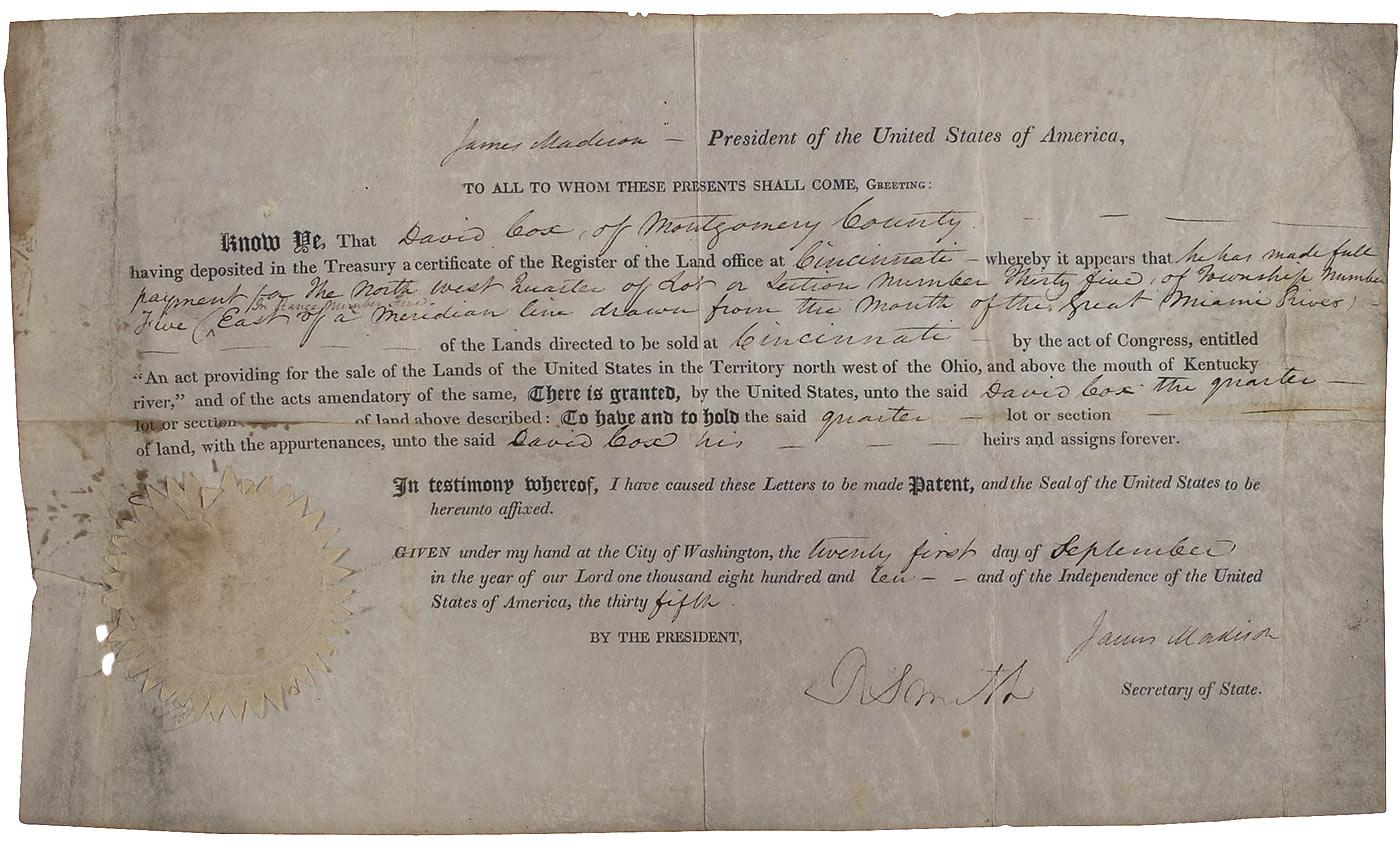 James Madison — President of the United States of America,
TO ALL TO WHOM THESE PRESENTS SHALL COME, GREETING:
Know Ye, That David Cox, of Montgomery County. — — —
having deposited in the Treasury a certificate of the Register of the Land office at Cincinnati — whereby it appears that he has made full
payment for the North west Quarter of Lot or Section Number Thirty five, of Township Number
in Range Number Five.
Five (East of a Meridian line drawn from the Mouth of the Great Miami River) —
— — — — of the Lands directed to be sold at Cincinnati — by the act of Congress, entitled
"An act providing for the sale of the Lands of the United States in the Territory north west of the Ohio, and above the mouth of Kentucky
river," and of the acts amendatory of the same, There is granted, by the United States, unto the said David Cox the quarter —
lot or section — of land above described: To have and to hold the said quarter — lot or section —
of land, with the appurtenances, unto the said David Cox his — — — — heirs and assigns forever.
In testimony whereof, I have caused these Letters to be made Patent, and the Seal of the United States to be
hereunto affixed.
GIVEN under my hand at the City of Washington, the twenty first day of September
in the year of our Lord one thousand eight hundred and ten — — and of the Independence of the United
States of America, the thirty fifth.
BY THE PRESIDENT,
James Madison
R Smith Secretary of State.